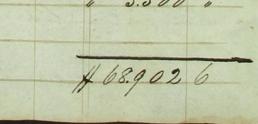 " 3.300 "
# 68.902 6